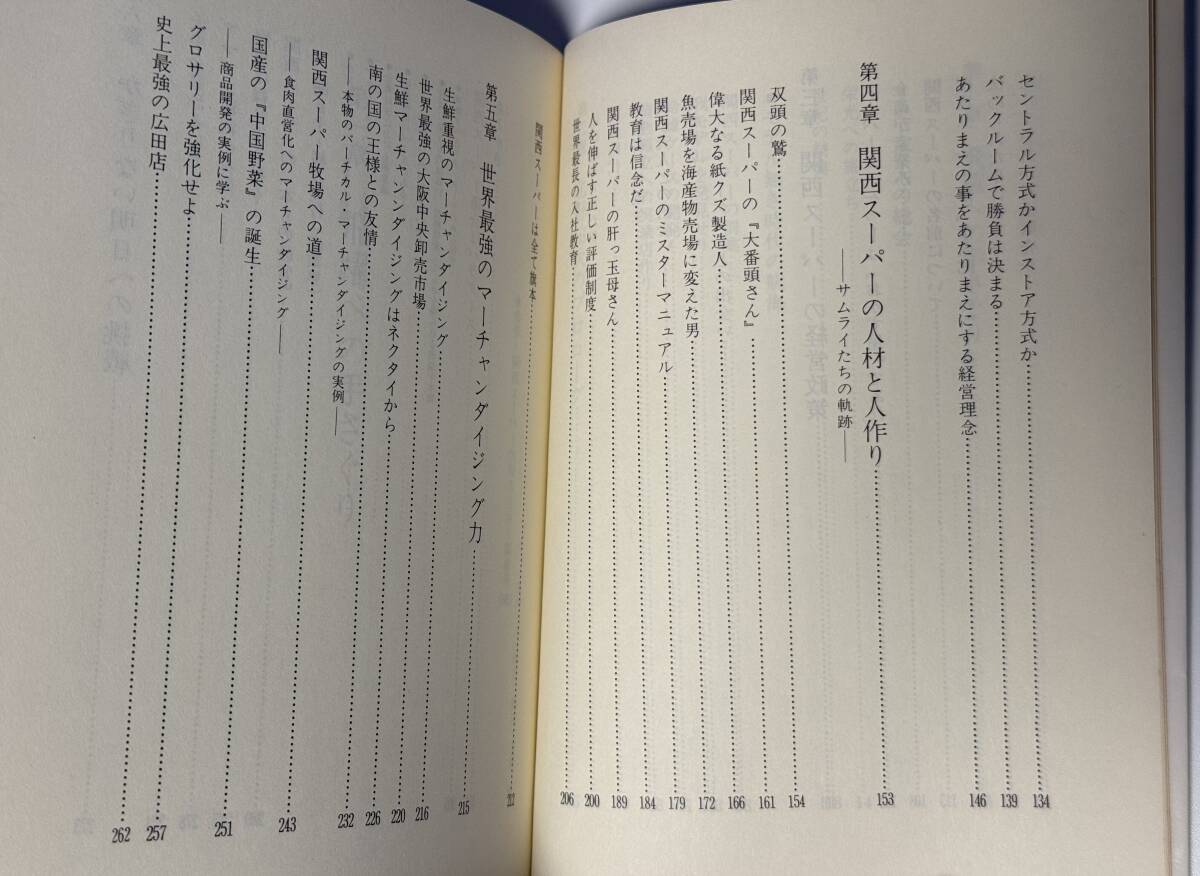 セントラル方式かインストア方式か……134
バックルームで勝負は決まる……139
あたりまえの事をあたりまえにする経営理念……146
第四章 関西スーパーの人材と人作り……153
――サムライたちの軌跡――
双頭の鷲……154
関西スーパーの『大番頭さん』……161
偉大なる紙クズ製造人……166
魚売場を海産物売場に変えた男……172
関西スーパーのミスターマニュアル……179
教育は信念だ……184
関西スーパーの肝っ玉母さん……189
人を伸ばす正しい評価制度……200
世界最長の入社教育……206
関西スーパーは全て旗本……212
第五章 世界最強のマーチャンダイジング力……215
生鮮重視のマーチャンダイジング……216
世界最強の大阪中央卸売市場……220
生鮮マーチャンダイジングはネクタイから……226
南の国の王様との友情……232
――本物のバーチカル・マーチャンダイジングの実例――
関西スーパー牧場への道……243
――食肉直営化へのマーチャンダイジング――
国産の『中国野菜』の誕生……251
――商品開発の実例に学ぶ――
グロサリーを強化せよ……257
史上最強の広田店……262